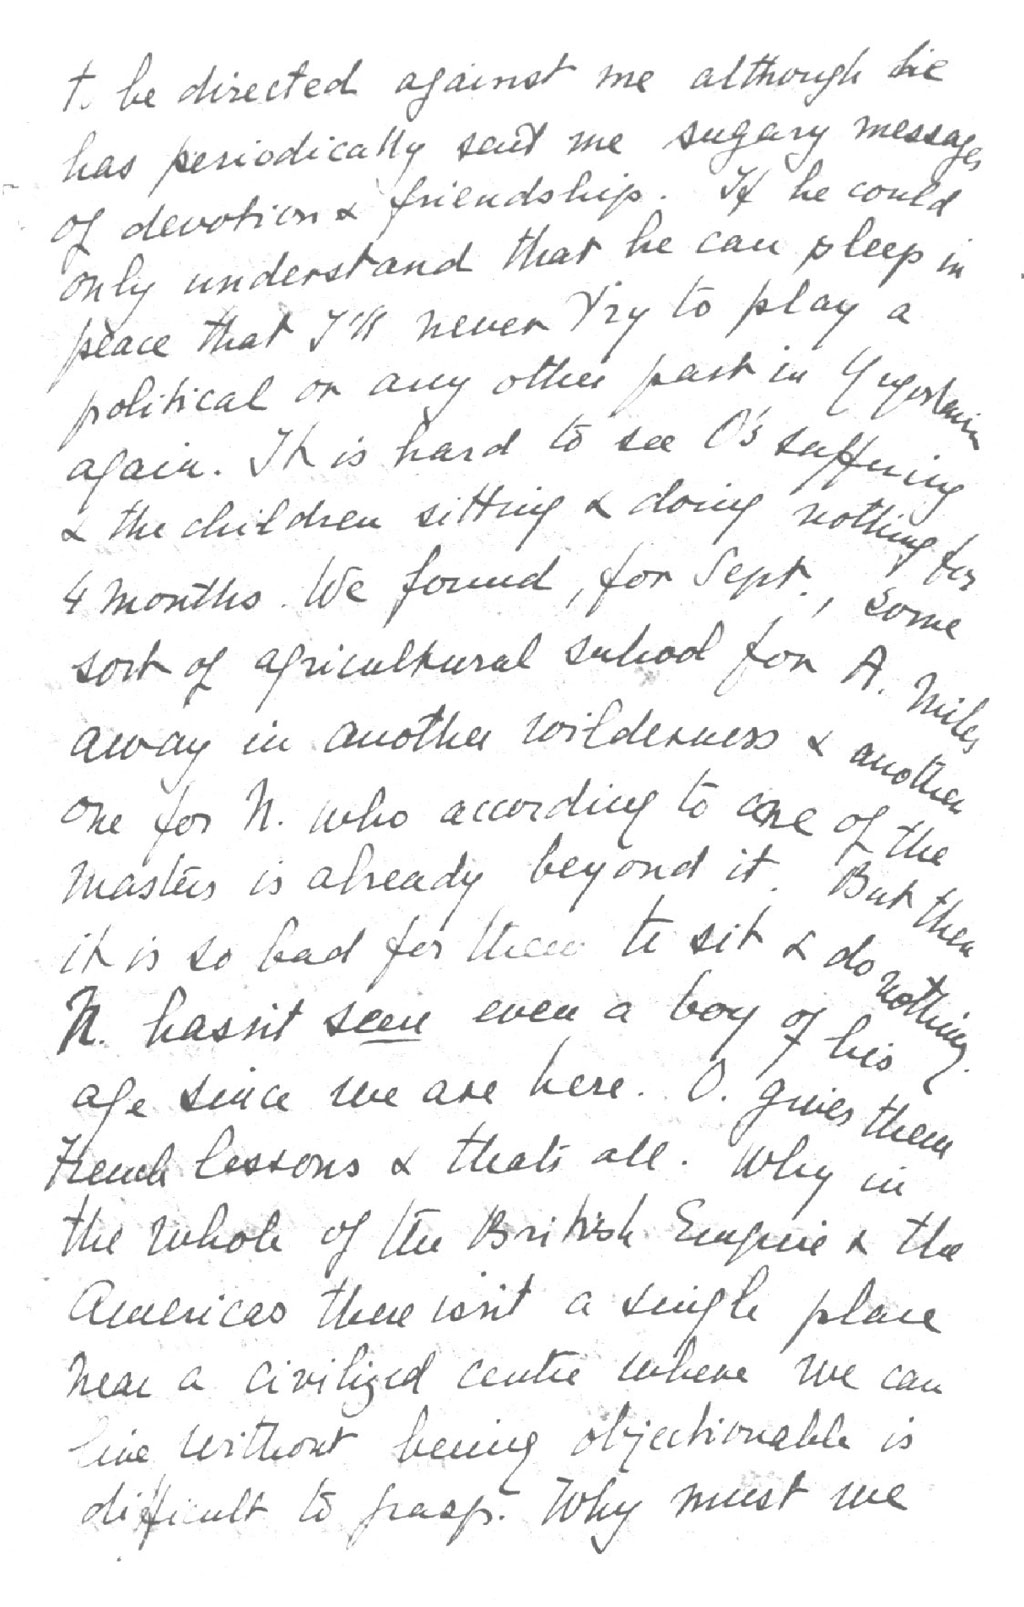 to be directed against me although he
has periodically sent me sugary messages
of devotion & friendship. If he could
only understand that he can sleep in
peace that I'll never try to play a
political or any other part in Yugoslavia
again. It is hard to see O's suffering
& the children sitting & doing nothing for
4 months. We found, for Sept., some
sort of agricultural school for A. miles
away in another wilderness & another
one for N. who according to one of the
masters is already beyond it. But then
it is so bad for them to sit & do nothing.
N. hasn't seen even a boy of his
age since we are here. O. gives them
French lessons & that's all. Why in
the whole of the British Empire & the
Americas there isn't a single place
near a civilized centre where we can
live without being objectionable is
difficult to grasp. Why must we